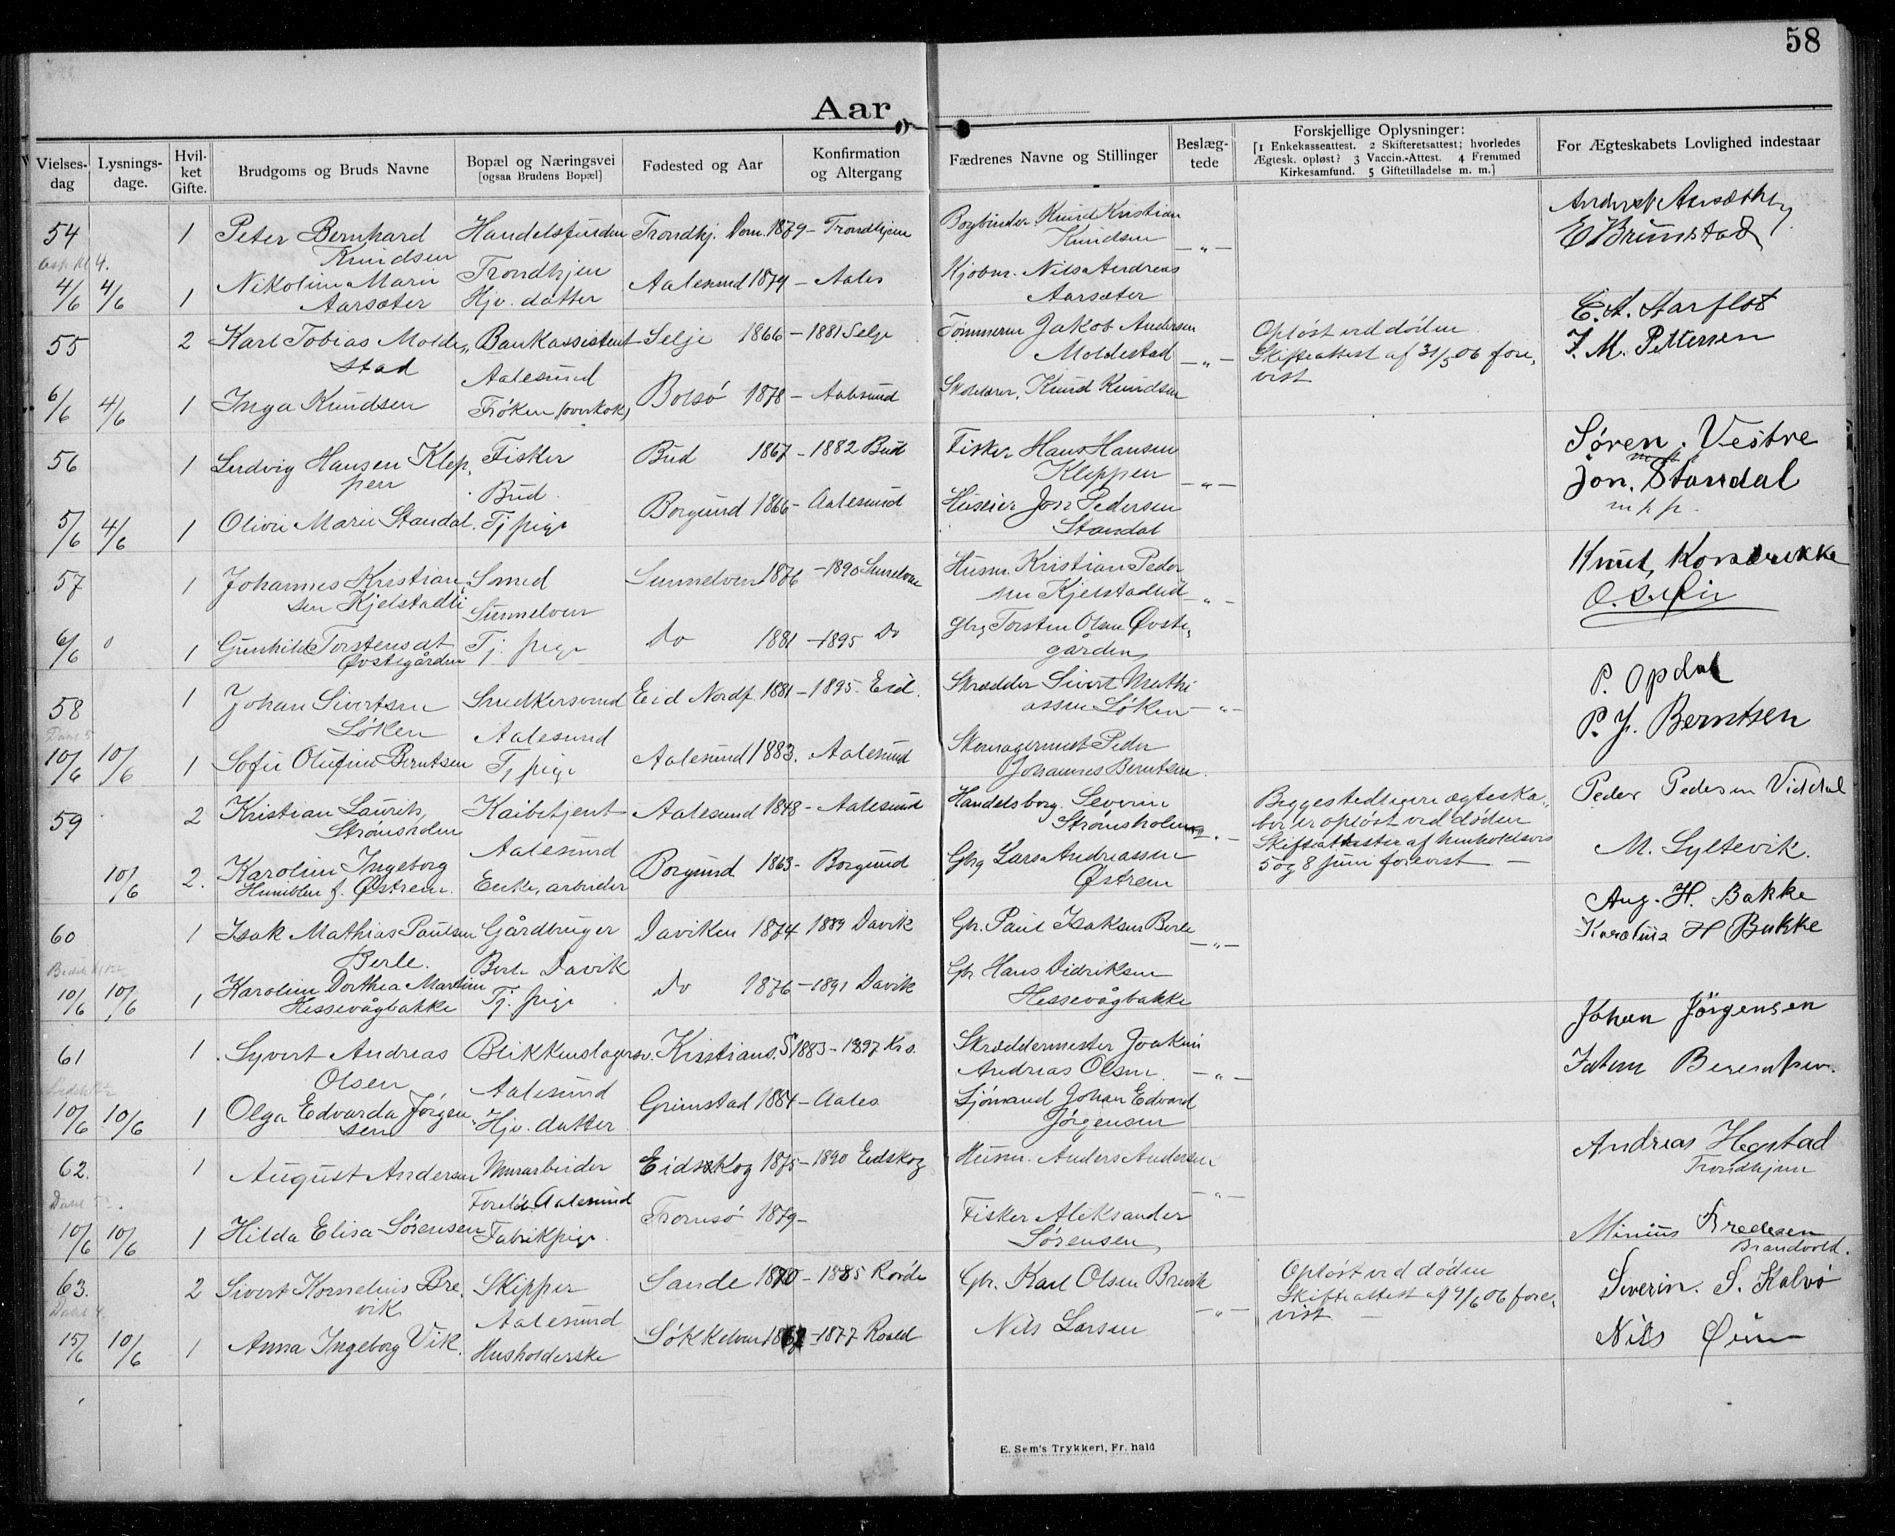 58
Aar
Vielses-dag Lysnings-dage. Hvil-ket Gifte. Brudgoms og Bruds Navne Bopæl og Næringsvei [ogsaa Brudens Bopæl] Fødested og Aar Konfirmation og Altergang Fædrenes Navne og Stillinger Beslæg-tede Forskjellige Oplysninger: [1 Enkekasseattest. 2 Skifteretsattest; hvorledes Ægtesk. opløst? 3 Vaccin.-Attest. 4 Fremmed Kirkesamfund. 5 Giftetilladelse m. m.] For Ægteskabets Lovlighed indestaar
54 1 Peter Bernhard Knudsen Trondhj. Dom. 1879 - Trondhjem Knud Kristian Knudsen - " -
E Brunstad
4/6 4/6 1 Nikoline Marie Aarsæter Trondhjem Hjv. datter Aalesund 1879 - Aales Kjøbm. Nils Andreas Aarsæter
55 2 Karl Tobias Molde„stad Bankassistent Aalesund Selje 1866 - 1881 Selje Tømmerm Jakob Andersen Moldestad - " - Opløst ved døden Skifteattest af 31/5 06 fore„vist
E. A. Aarflot
J. M. Pettersen
6/6 4/6 1 Inga Knudsen Frøken (overkok) Bolsø 1878 - Aalesund Knud Knudsen
56 1 Ludvig Hansen Klep„pen Fisker Bud Bud 1867 - 1882 Bud Fisker Hans Hansen Kleppen - " -
Søren Vestre
Jon. Standal
m p p.
5/6 4/6 1 Olivie Marie Standal Tj. pige Borgund 1866 - Aalesund Huseier Jon Pedersen Standal
57 1 Johannes Kristian„sen Kjelstadli Smed Sunnelven Sunnelven 1876 - 1890 Sunnelven Husm. Kristian Peder„sen Kjelstadlid - " -
Knut
6/6 1 Gunhild Torstensdt Øvstegården Tj. pige Do 1881 - 1895 Do Gbrg Torsten Olsen Øvste„gården
58 1 Johan Sivertsen Løken Snedkersvend Aalesund Eid Nordf 1881 - 1895 Eid. Skrædder Sivert Mathi„assen Løken - " -
P. Opdal
P. J. Berntsen
10/6 10/6 1 Sofie Olufine Berntsen Tj. pige Aalesund 1883. Aalesund Skomagermest Peder Johannes Berntsen.
59 2 Kristian Laurits Strømsholm Kaibetjent Aalesund Aalesund 1848 - Aalesund Handelsborg. Severin Strømsholm - " - Begges tidligere ægteska„ber er opløst ved døden Skifteattester af henholdsvis 5 og 8 juni forevist -
Peder Pedersen Viddal
M. Syltevik.
10/6 2. Karoline Ingeborg Humblen f. Østrem. Enke, arbeider Borgund 1863 - Borgund Gbrg Lars Andreassen Østrem
60 1 Isak Mathias Paulsen Berle. Gårdbruger Berle Davik Daviken 1874 1889 Davik Gbr. Paul Isaksen Berle - " -
Aug. H. Bakke
H Bakke
10/6 10/6 1 Karoline Dorthea Martine Hessevågbakke Tj. pige Do 1876 - 1891 Davik Gbr Hans Didriksen Hessevågbakke
61 1. Syvert Andreas Olsen Blikkenslagersv. Aalesund Kristians. S 1883 - 1897 Krs. Skræddermester Joakim Andreas Olsen. - " -
Johan Jörgensen
10/6 10/6 1 Olga Edvarda Jørgen„sen Hjv. datter Grimstad 1884 - Aales Sjømand Johan Edvard Jørgensen
62. 1 August Andersen Murarbeider Aalesund Eidskog 1875 - 1890 Eidskog Husm. Anders Andersen - " -
Andreas Hegstad
Trondhjem
10/6 10/6 1 Hilda Elisa Sørensen Fabrikpige. Tromsø 1879 - Fisker Aleksander Sørensen
Bredesen
Brandvold.
63. 2 Sivert Kornelius Bre„vik Skipper Aalesund Sande 1870 - 1885 Rovde Gbr. Karl Olsen Brevik - " - Opløst ved døden Skifteattest af 9/6 06 fore„vist -
Severin. S. Kalvø
Nils
15/6 10/6 1 Anna Ingeborg Vik. Husholderske Søkkelven - 1877 Roald Nils Larsen
E. Sem's Trykkeri, Fr. hald